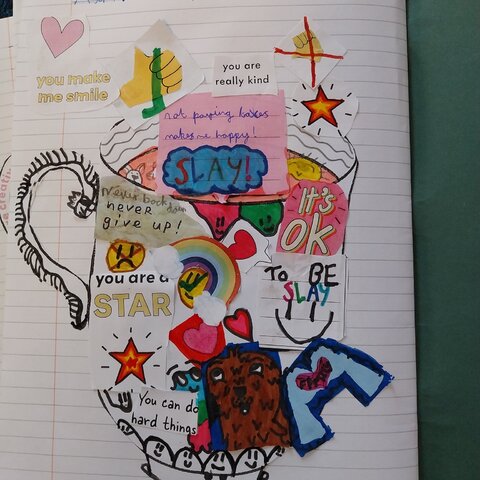 you make
me smile
you are
really kind
not paying taxes
makes me happy!
SLAY!
Never back down
never
give up!
IT'S
OK
you are a
STAR
TO BE
SLAY
You can do
hard things